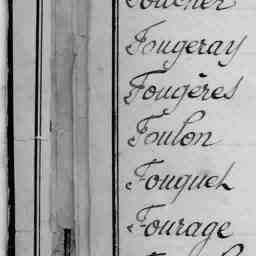 Foucher
Fougeray
Fougères
Foulon
Fouquet
Fourage